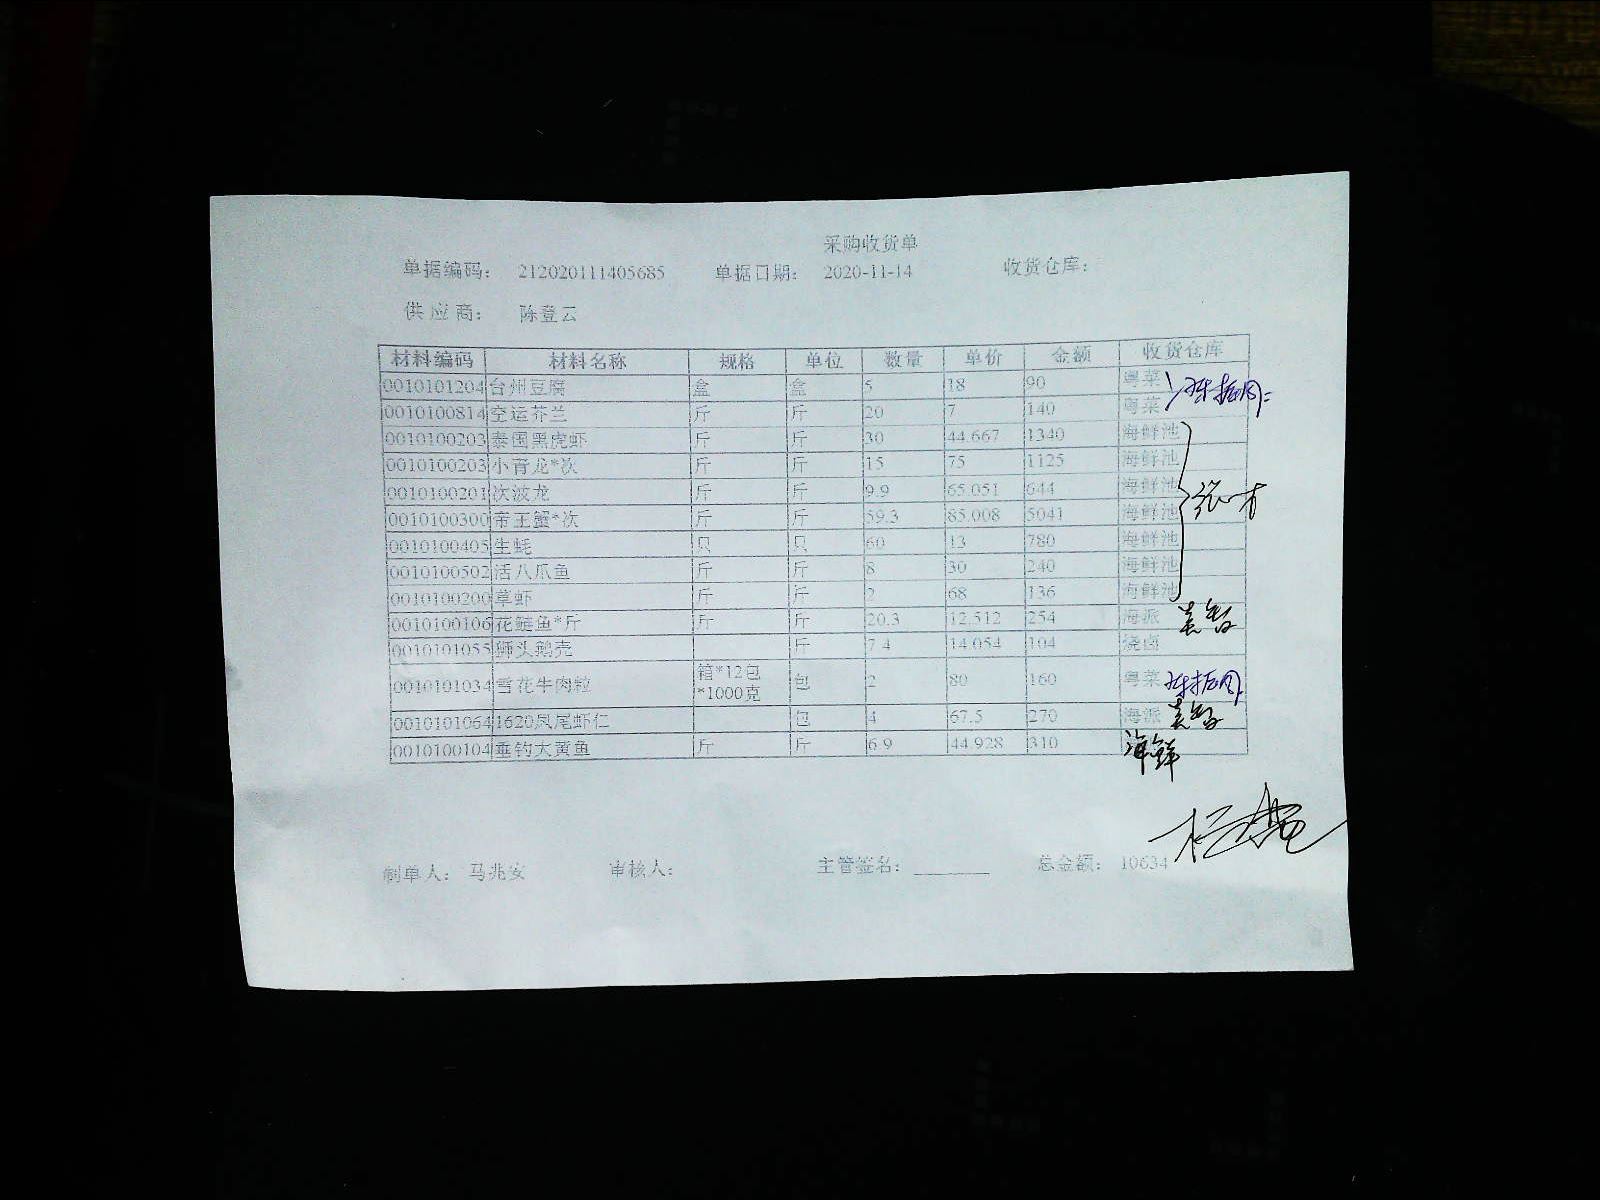 采购收货单
单据编码： 212020111405685 单据日期： 2020-11-14 收货仓库：
供 应 商： 陈登云
材料编码 材料名称 规格 单位 数量 单价 金额 收货仓库
0010101204 台州豆腐 盒 盒 5 18 90 粤菜
0010100814 空运芥兰 斤 斤 20 7 140 粤菜
0010100203 泰国黑虎虾 斤 斤 30 44.667 1340 海鲜池
0010100203 小青龙*次 斤 斤 15 75 1125 海鲜池
0010100201 次波龙 斤 斤 9.9 65.051 644 海鲜池
0010100300 帝王蟹*次 斤 斤 59.3 85.008 5041 海鲜池
0010100405 生蚝 只 只 60 13 780 海鲜池
0010100502 活八爪鱼 斤 斤 8 30 240 海鲜池
0010100200 草虾 斤 斤 2 68 136 海鲜池
0010100106 花鲢鱼*斤 斤 斤 20.3 12.512 254 海派
0010101055 狮头鹅壳 斤 7.4 14.054 104 烧卤
0010101034 雪花牛肉粒 箱*12包 包 2 80 160 粤菜
*1000克
0010101064 1620凤尾虾仁 包 4 67.5 270 海派
0010100104 垂钓大黄鱼 斤 斤 6.9 44.928 310 海鲜
制单人： 马兆安 审核人： 主管签名： 总金额： 10634